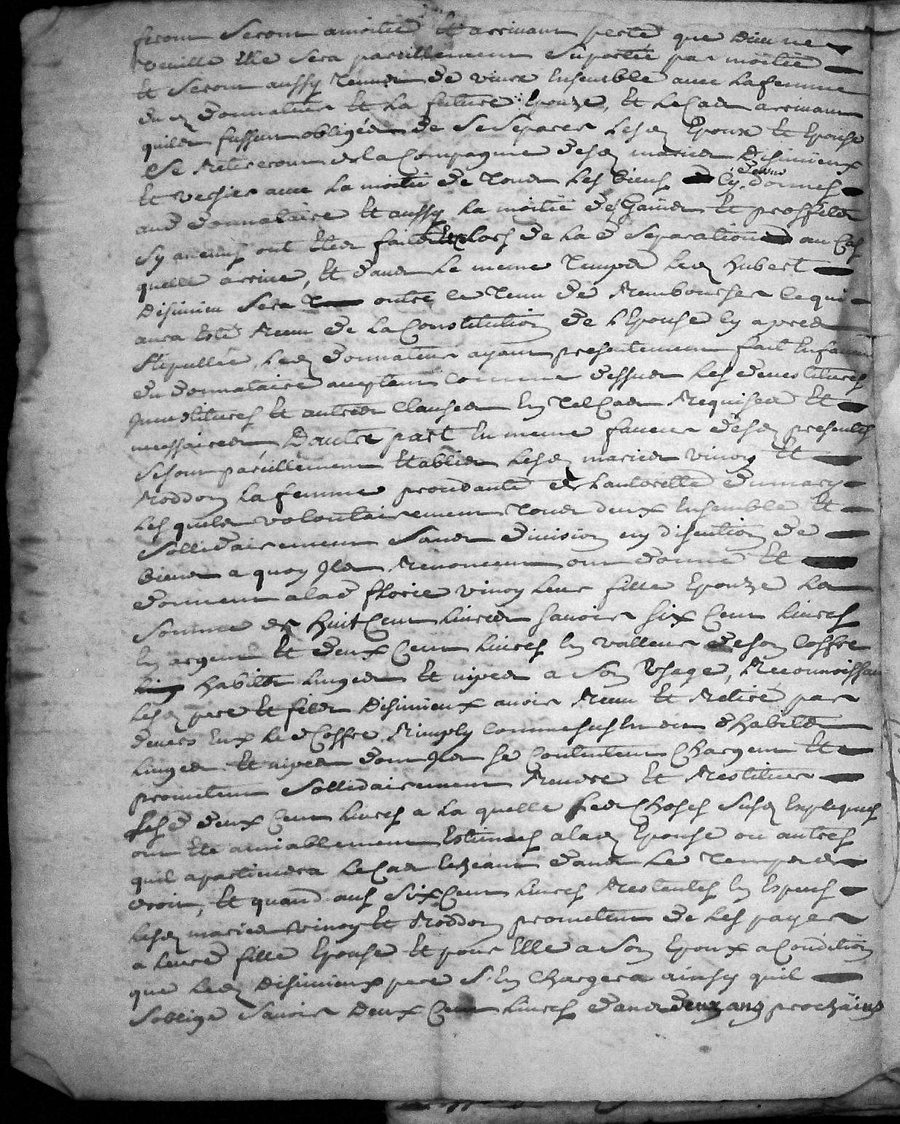 feront seront amoitié Et arrivant perte que dieu ne
veuille Elle sera pareillement suportée par moitié
Et seront aussy tenus de vivre Ensemble avec la femme
du d donnateur Et la future Epouze, Et le cas arrivant
quils fussent obligés de se separer les d Epoux Et Epouse
se retireront de la Compagnie des d mariés disimieux
Et avec la moitié de tous les biens cy devant donnés
aud donnataire Et aussy la moitié des Gains Et proffits
sy aucuns ont Etés faits lors de la d separation au Cas
quelle arrive, Et dans le meme temps led hubert
disimieu sera outre ce tenu de Rembourser ce qui
aura Esté Receu de la Constitution de l'Epouse cy apres
stipullée, les d donnateurs ayant presentement fait En faveur
du donnataire acceptant comme dessus les devestitures
Investitures Et autres Clauses En tel Cas Requises Et
necessaires, Dautre part En meme faveur des d presentes
se sont pareillement Etablis les d mariés vinoy Et
Roddon la femme procedante de l'autorité du mary
lesquels volontairement tous deux Ensemble Et
sollidairement sans division ny discution de
biens a quoy Ils Renoncent ont donné Et
donnent a la d florie vinoy leur fille Epouze la
somme de huit Cent livres savoir six Cent livres
En argent Et deux Cent livres En valleur de son Coffre
habits linges Et nipes a son Usage, Reconnoissant
les d pere Et fils disimieux avoir Receu Et Retiré par
devers Eux le d Coffre Remply comme sus Est dit d'habits
linges Et nipes dont Ils se Contentent Chargent Et
promettent sollidairement Rendre Et Restituer
les d deux Cent livres a la quelle les d Choses sus d Expliquées
ont Eté amiablement Estimées a la d Epouse ou autres
quil apartiendra le Cas Echeant dans le temps de
droit, Et quand aus six Cent livres Restentes En Especes
les d mariés vinoy Et Roddon promettent de les payer
a leur d fille Epouse Et pour Elle a son Epoux a Condition
que le d disimieux pere s'En Chargera ainsy quil
soblige savoir deux Cent livres dans deux ans prochains